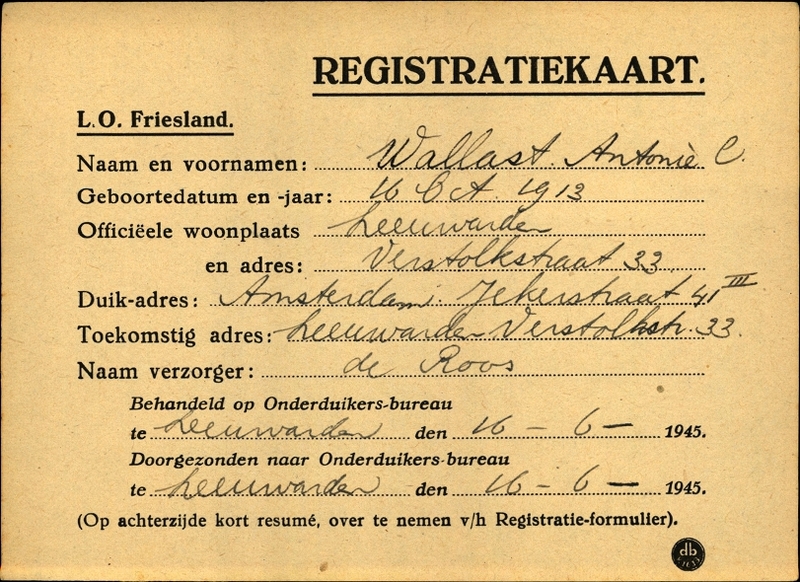 REGISTRATIEKAART.
L.O. Friesland.
Naam en voornamen: Wallast. Antonie C.
Geboortedatum en -jaar: 16 Oct. 1913
Officiëele woonplaats Leeuwarden
en adres: Verstolkstraat 33
Duik-adres: Amsterdam. Jekerstraat 41 III
Toekomstig adres: Leeuwarden Verstolkstr. 33.
Naam verzorger: de Roos
Behandeld op Onderduikers-bureau
te Leeuwarden den 16 - 6 - 1945.
Doorgezonden naar Onderduikers-bureau
te Leeuwarden den 16 - 6 - 1945.
(Op achterzijde kort resumé, over te nemen v/h Registratie-formulier).
db